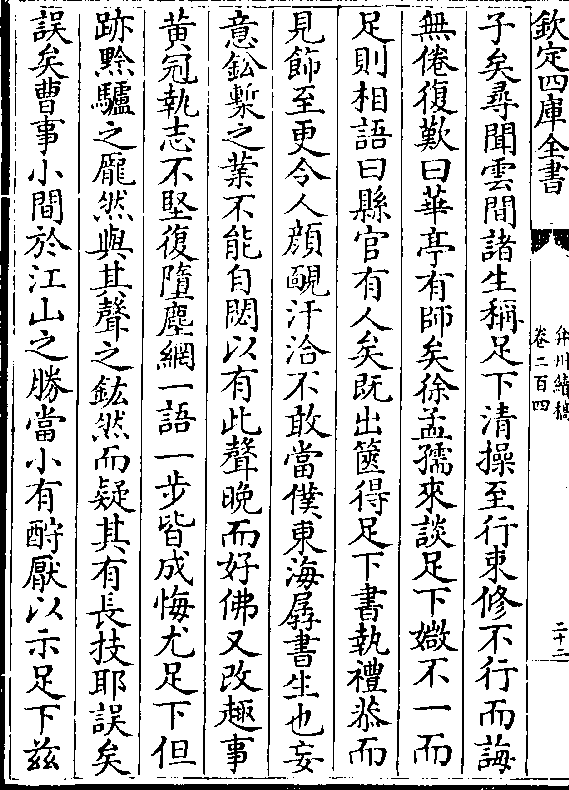 欽定四庫全書
弇州續稿
卷二百四
二十二
子矣尋聞雲間諸生稱足下清操至行束修不行而誨
無倦復歎曰華亭有師矣徐孟孺來談足下媺不一而
足則相語曰縣官有人矣既出篋得足下書執禮恭而
見飾至更令人顔䩄汗洽不敢當僕東海孱書生也妄
意鈆槧之業不能自閟以有此聲晚而好佛又改趣事
黄冠執志不堅復墮塵網一語一步皆成悔尤足下但
跡黔驢之龎然與其聲之鋐然而疑其有長技耶誤矣
誤矣曹事小間於江山之勝當小有酧厭以示足下兹